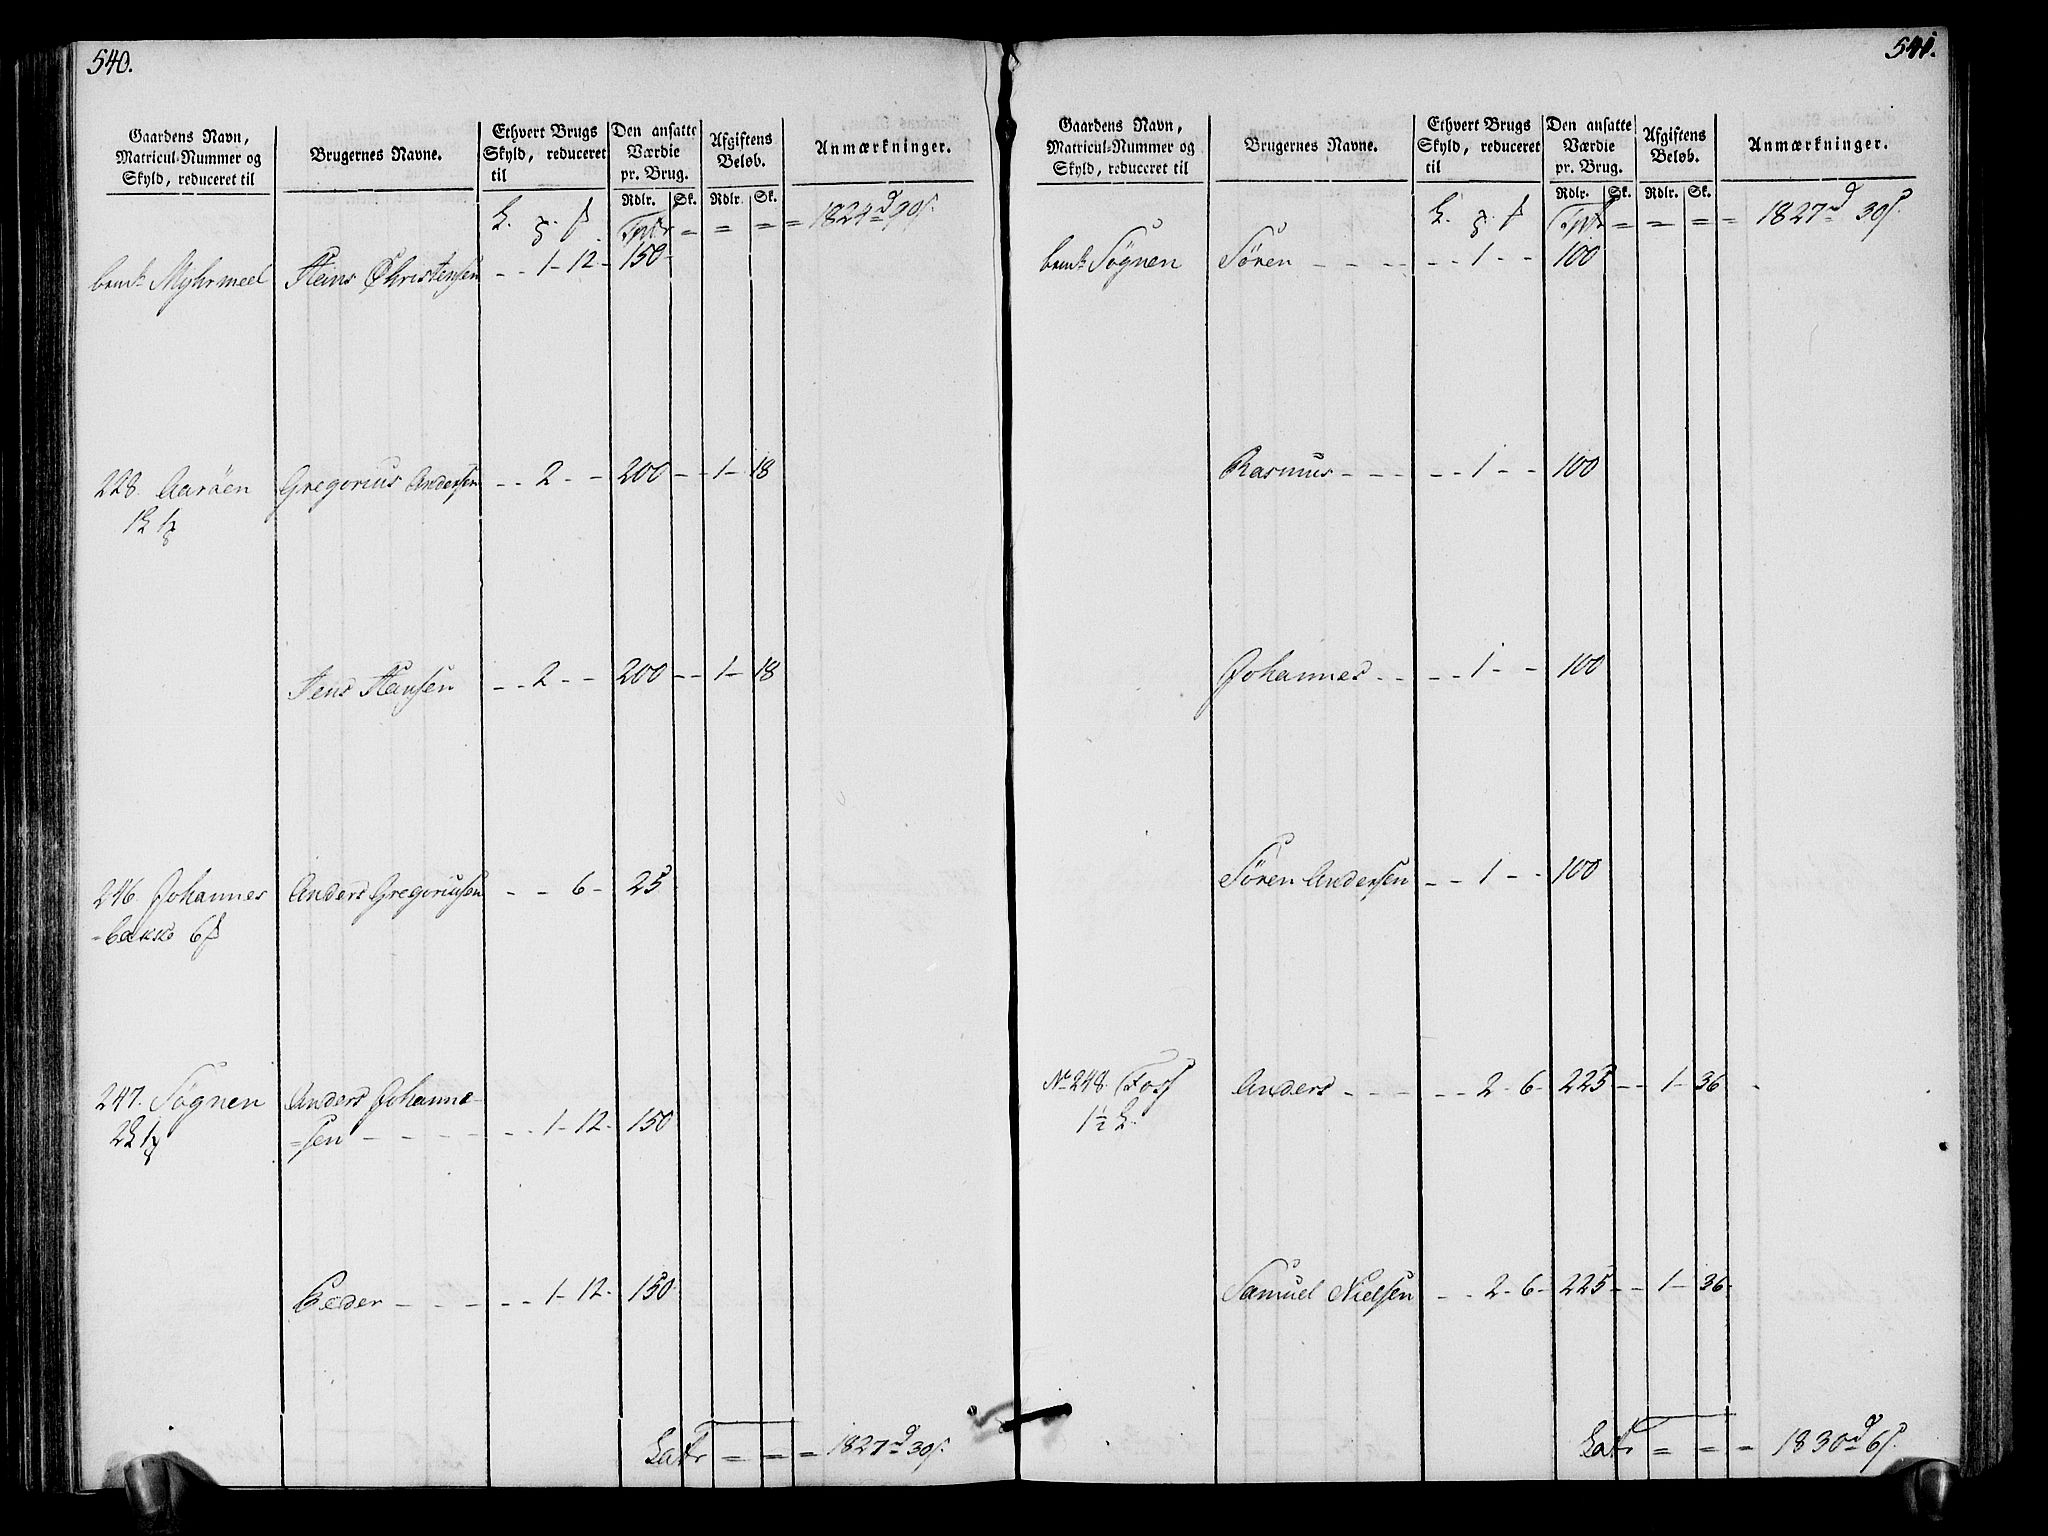 540.
Gaardens Navn, Matricul-Nummer og Skyld, reduceret til
Brugernes Navne.
Ethvert Brugs Skyld, reduceret til
Den ansatte Værdie pr. Brug.
Afgiftens Beløb.
Anmærkninger.
Rdlr. Sk. Rdlr. Sk.
Tpt = = = = 1824 d 90 s.
Myhrmeel Hans Christensen - - 1 - 12 - 150 -
228. Aarøen Gregorius Andersen - - 2 - - 200 - - 1 - 18
Jens Hansen - - 2 - - 200 - - 1 - 18
246. Johannes Anders Gregoriusen - - 6 - 25
=bakke 6
247. Søgnen Anders Johanne=
=sen - - - - - - 1 - 12 - 150
Peder - - - - - 1 - 12 - 150
Latr = = = 1827 d 30 s.
541.
Gaardens Navn, Matricul-Nummer og Skyld, reduceret til
Brugernes Navne.
Ethvert Brugs Skyld, reduceret til
Den ansatte Værdie pr. Brug.
Afgiftens Beløb.
Anmærkninger.
Rdlr. Sk. Rdlr. Sk.
Tpt = = = = = 1827 d 30 s.
Søgnen Søren - - - - - 1 - - 100
Rasmus - - - - - 1 - - 100
Johannes - - - - 1 - - 100
Søren Andersen - - 1 - - 100
No 248. Foss Anders - - - - - 2 - 6 - 225 - - 1 - 36 -
1½
Samuel Nielsen - - 2 - 6 - 225 - - 1 - 36 -
Latr = = = 1830 d 6 s.